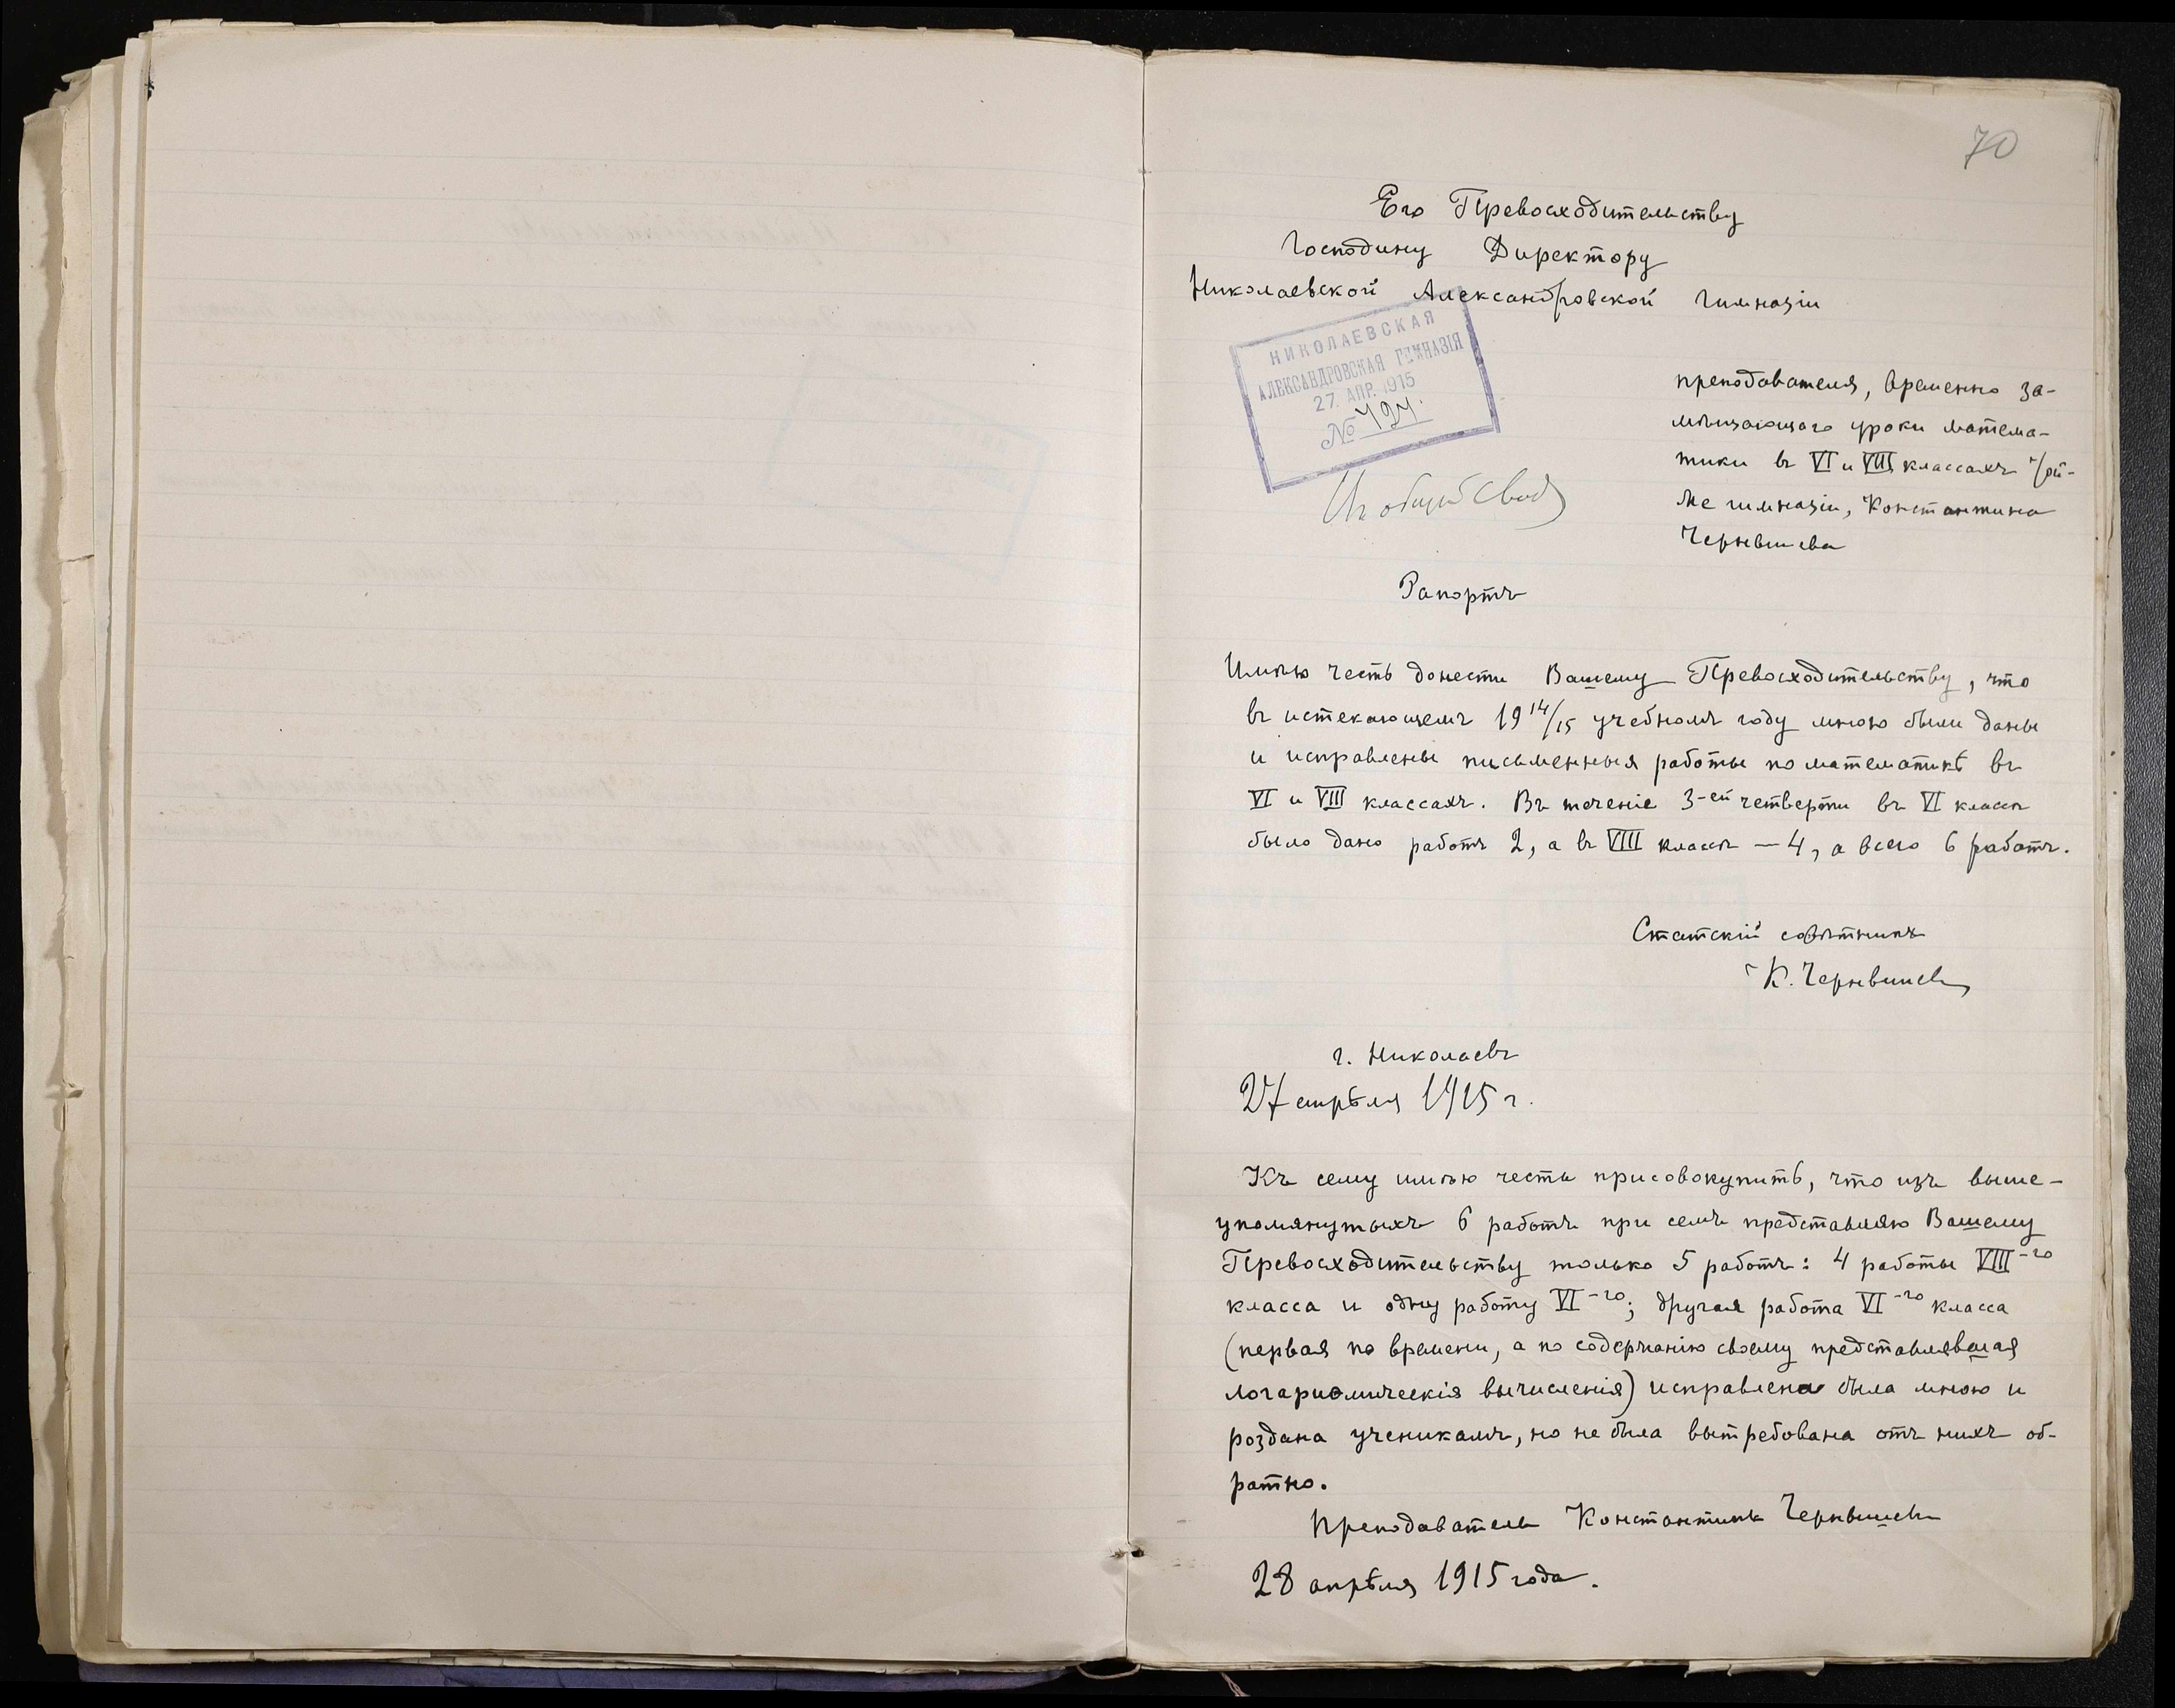 70
Его Превосходительству
Господину Директору
Николаевской Александровской гимназіи
НИКОЛАЕВСКАЯ
АЛЕКСАНДРОВСКАЯ ГИМНАЗІЯ
27 АПР. 1915
№ 424.
преподавателя, временно за-
мѣщающаго уроки матема-
тики въ VI и VIII классахъ той-
же гимназіи, Константина
Чернышева
Рапортъ
Имѣю честь донести Вашему Превосходительству, что
въ истекающемъ 1914/15 учебномъ году мною были даны
и исправлены письменныя работы по математикѣ въ
VI и VIII классахъ. Въ теченіе 3-ей четверти въ VI классѣ
было дано работъ 2, а въ VIII классѣ — 4, а всего 6 работъ.
Статскій совѣтникъ
К. Чернышевъ
г. Николаевъ
27 апрѣля 1915 г.
Къ сему имѣю честь присовокупить, что изъ выше-
упомянутыхъ 6 работъ при семъ представляю Вашему
Превосходительству только 5 работъ: 4 работы VIII-го
класса и одну работу VI-го; другая работа VI-го класса
(первая по времени, а по содержанію своему представлявшая
логариѳмическія вычисленія) исправлена была мною и
роздана ученикамъ, но не была вытребована отъ нихъ об-
ратно.
Преподаватель Константинъ Чернышевъ
28 апрѣля 1915 года.